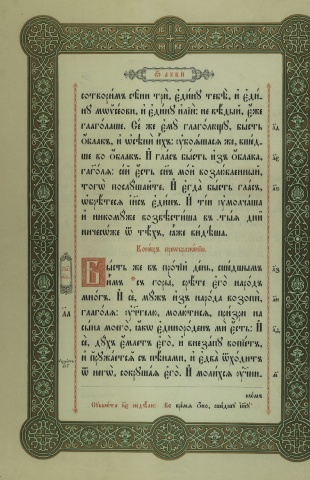 сотворимъ сѣни три, єдину тебѣ, и єди-
ну мѡѵсеови, и єдину иліи: не вѣдый, єже
глаголаше. Се же ємꙋ глаголющꙋ, бысть
облакъ, и ѡсѣни ихъ: ꙋбоѧшасѧ же, вшед-
ше во облакъ. И гласъ бысть изъ облака,
глаголѧ: сей єсть сн҃ъ мой возлюбленный,
тогѡ послꙋшайте. И єгда бысть гласъ,
ѡбрѣтесѧ іисъ єдинъ. И тіи ꙋмолчаша
и никомꙋже возвѣстиша въ тыѧ дни
ничесѡже ѿ тѣхъ, ꙗже видѣша.
Конецъ преѡбраженію.
Бысть же въ прочїй день, сшедшымъ
имъ съ горы, срѣте єго народъ
многъ. И се, мꙋжъ изъ народа возопи,
глаголѧ: ꙋчителю, молютисѧ, призри на
сына моего, ꙗкѡ єдинороденъ ми єсть: И
се, дꙋхъ ємлетъ єго, и внезапꙋ вопїетъ,
и прꙋжаетсѧ съ пѣнами, и єдва ѿходитъ
ѿ негѡ, сокрꙋшаѧ єго. И молихсѧ ꙋчни-
кѡмъ